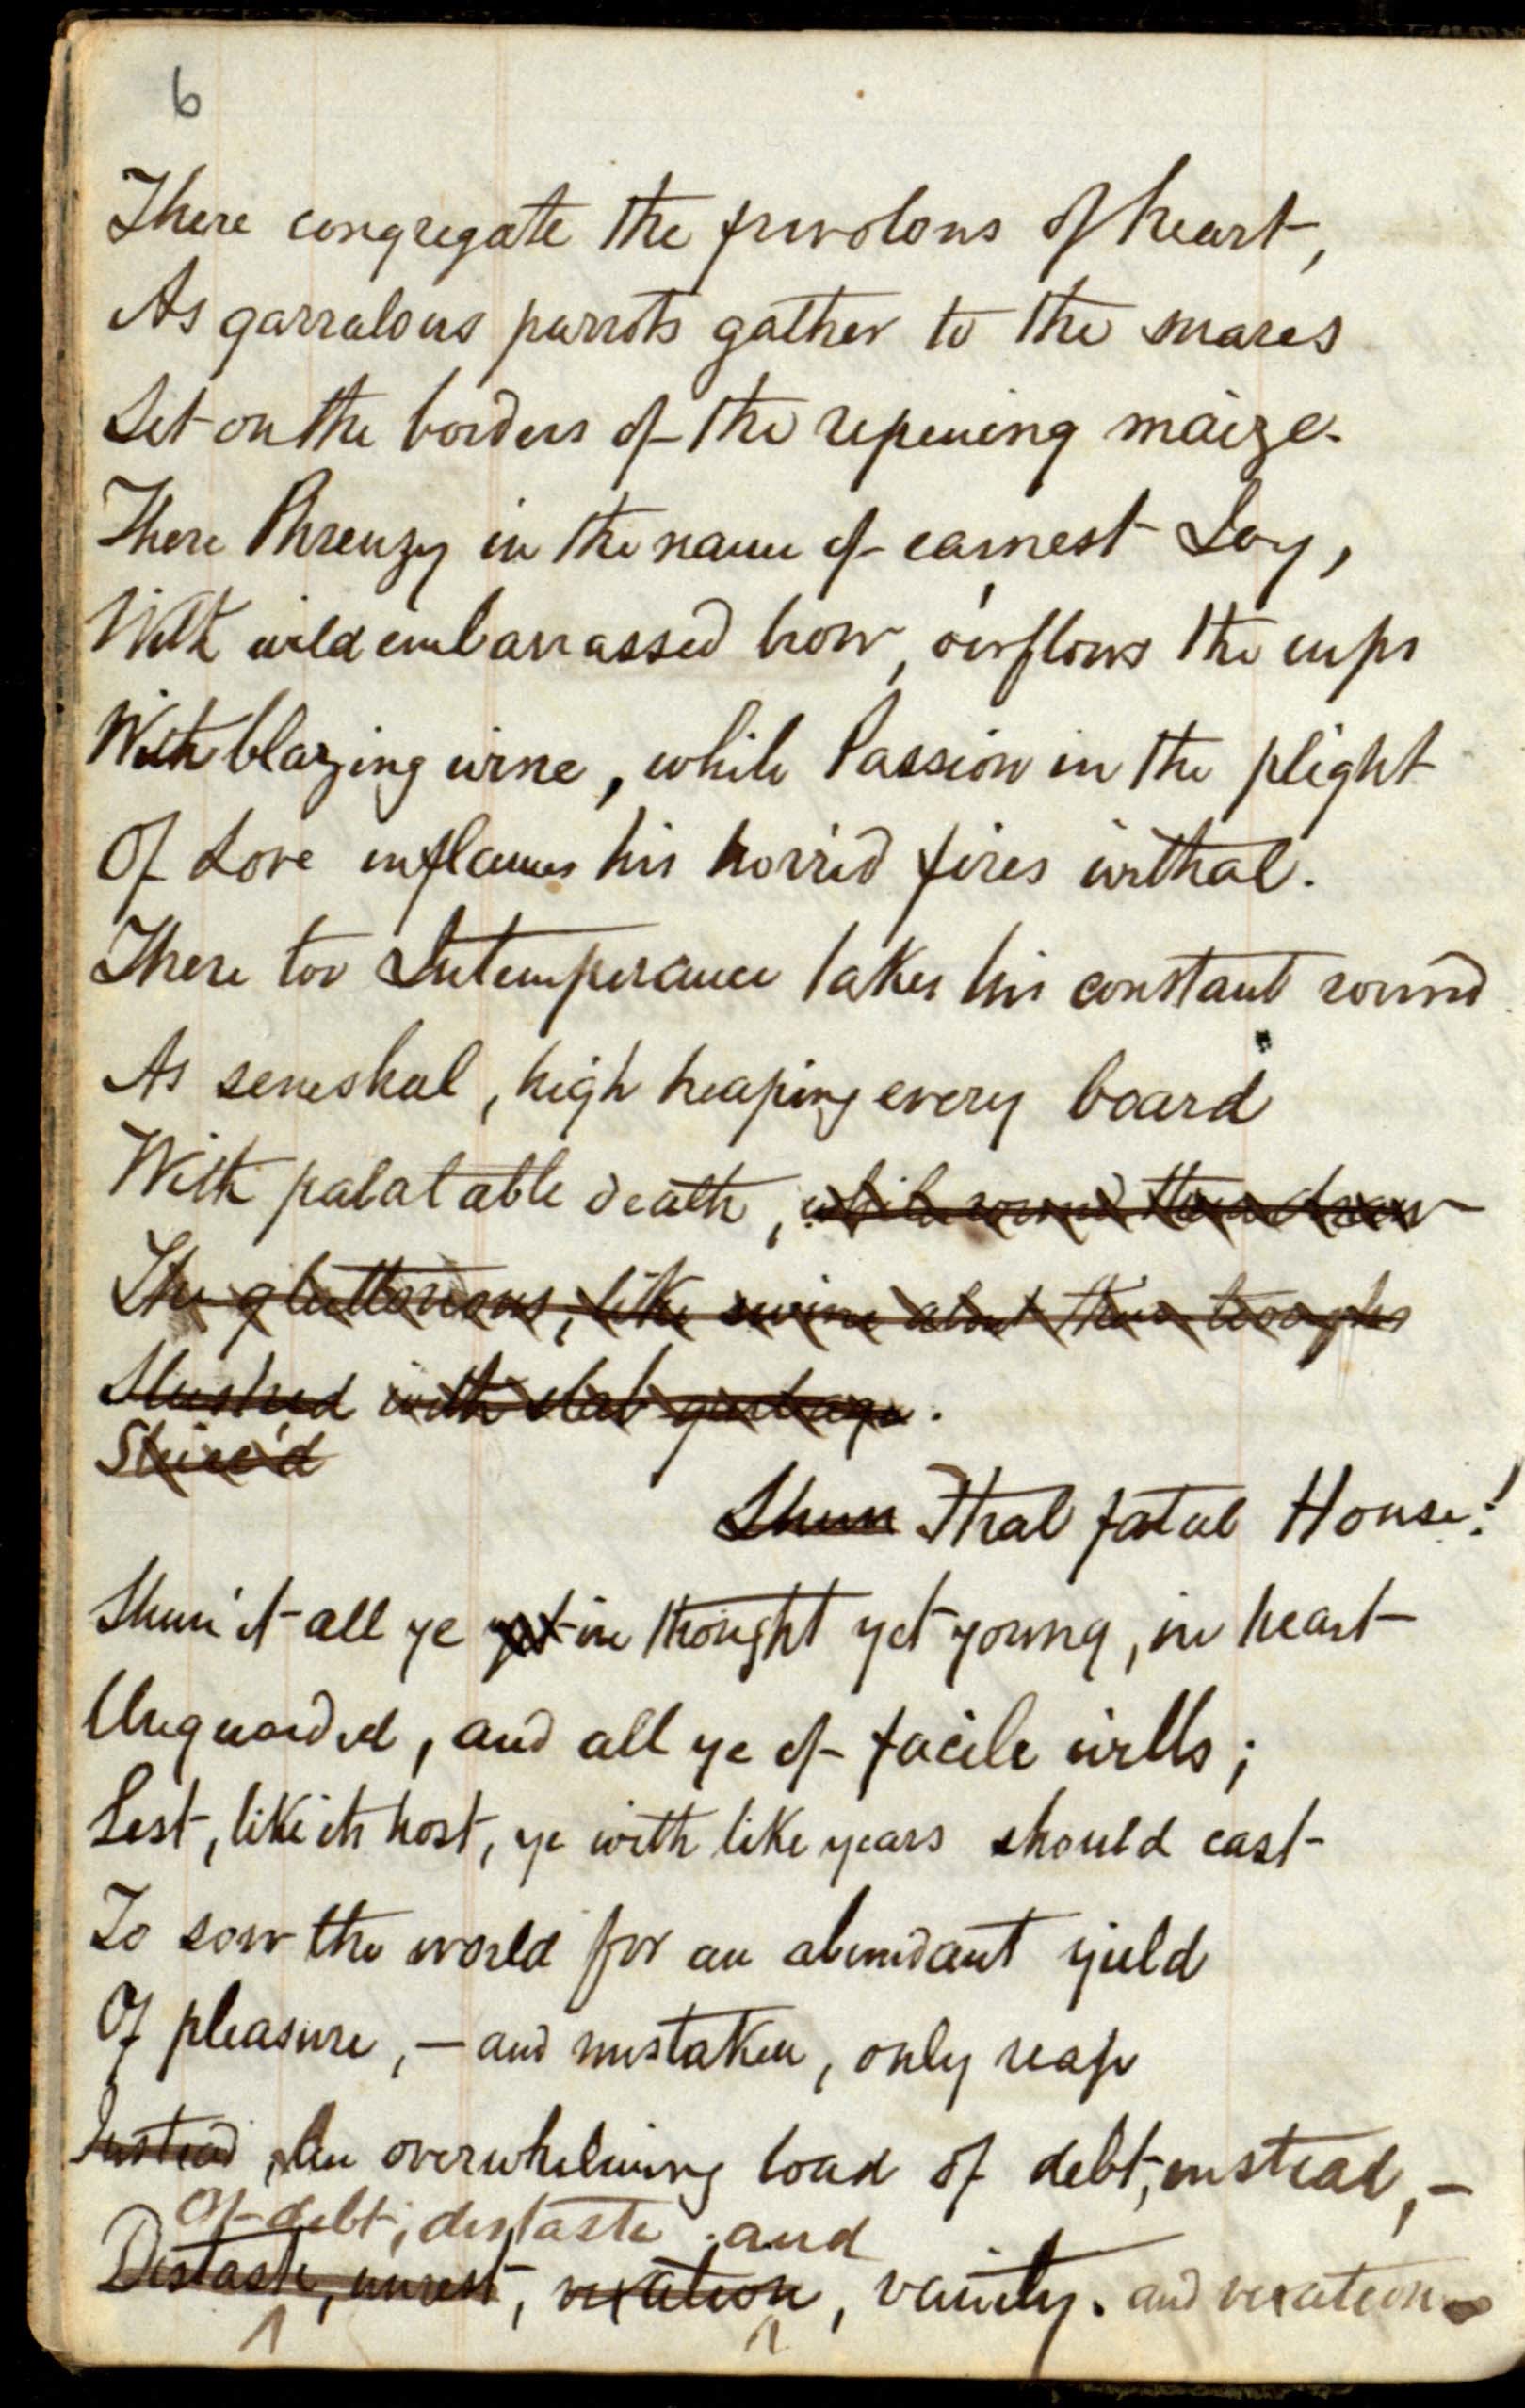 6
There congregate the frivolous of heart,
As garralous parrots gather to the snares
Set on the borders of the ripening maize.
There Phrenzy in the name of earnest Joy,
With wild embarrassed brow, o'erflows the cups
With blazing wine, while Passion in the plight
Of Love inflames his horrid fires withal.
There too Intemperance takes his constant round
As seneshal, high heaping every board
With palatable death, while round them draw
The gluttonous, like swine about their troughs
Slushed with slab garbage.
Sluic'd
Shun That fatal House!
Shun it all ye yet in thought yet young, in heart
Unguarded, and all ye of facile wills;
Lest, like its host, ye with like years should cast
To sow the world for an abundant yield
Of pleasure, — and mistaken, only reap
Instead, An overwhelming load of debt, instead, —
Of debt, distaste, and
Distaste, unrest, vexation, vanity. and vexation